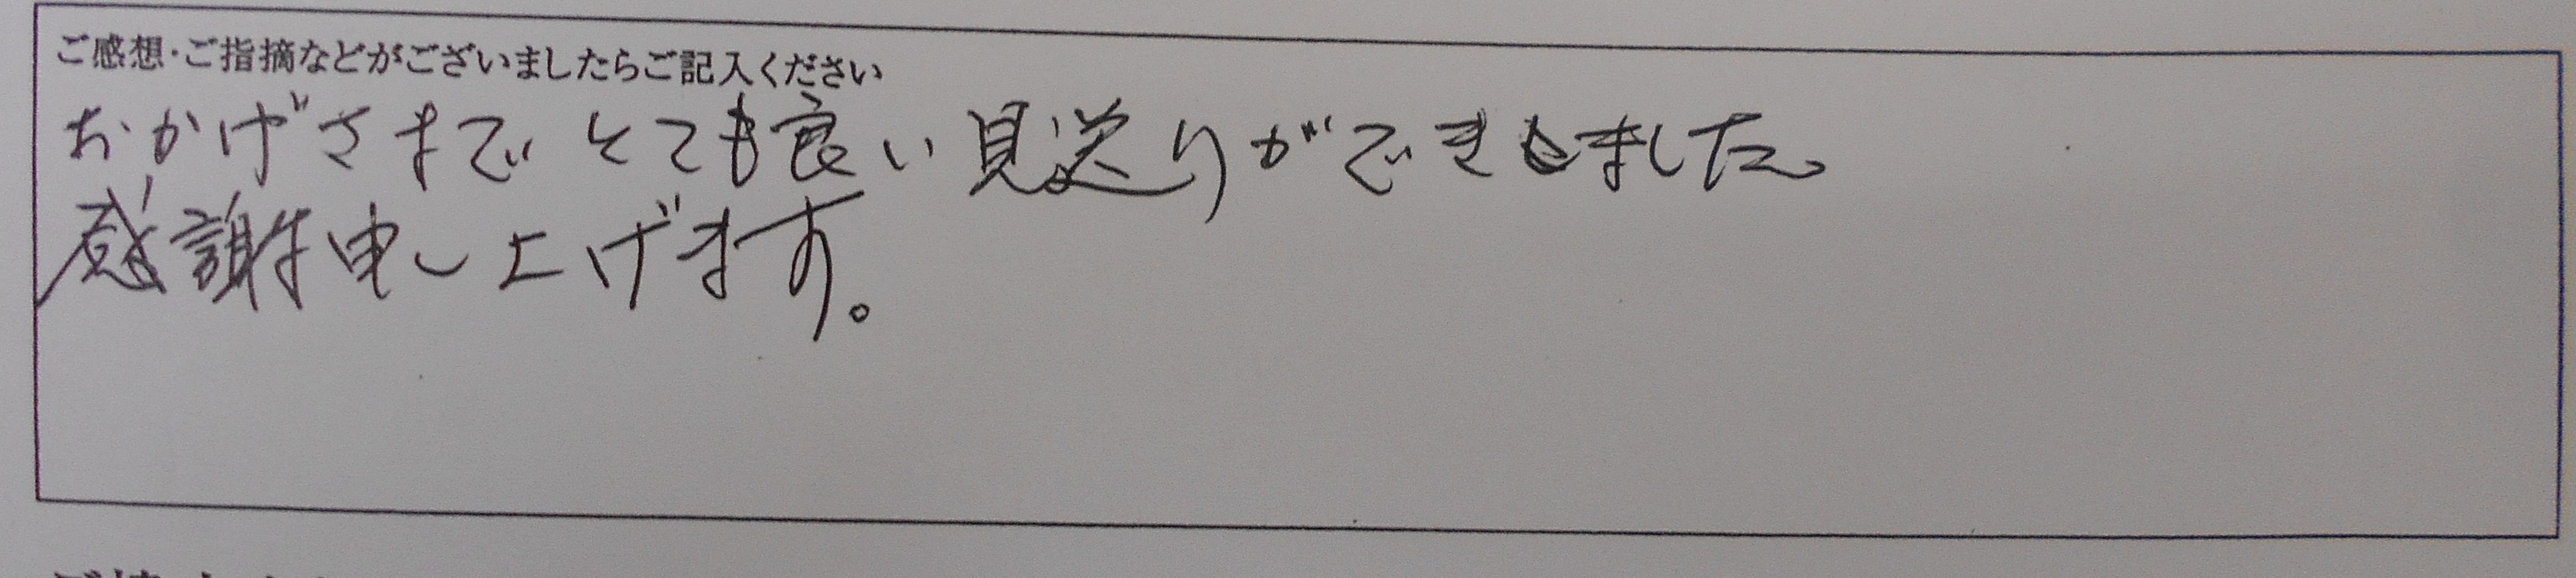 ご感想・ご指摘などがございましたらご記入ください
おかげさまでとても良い見送りができました。
感謝申し上げます。